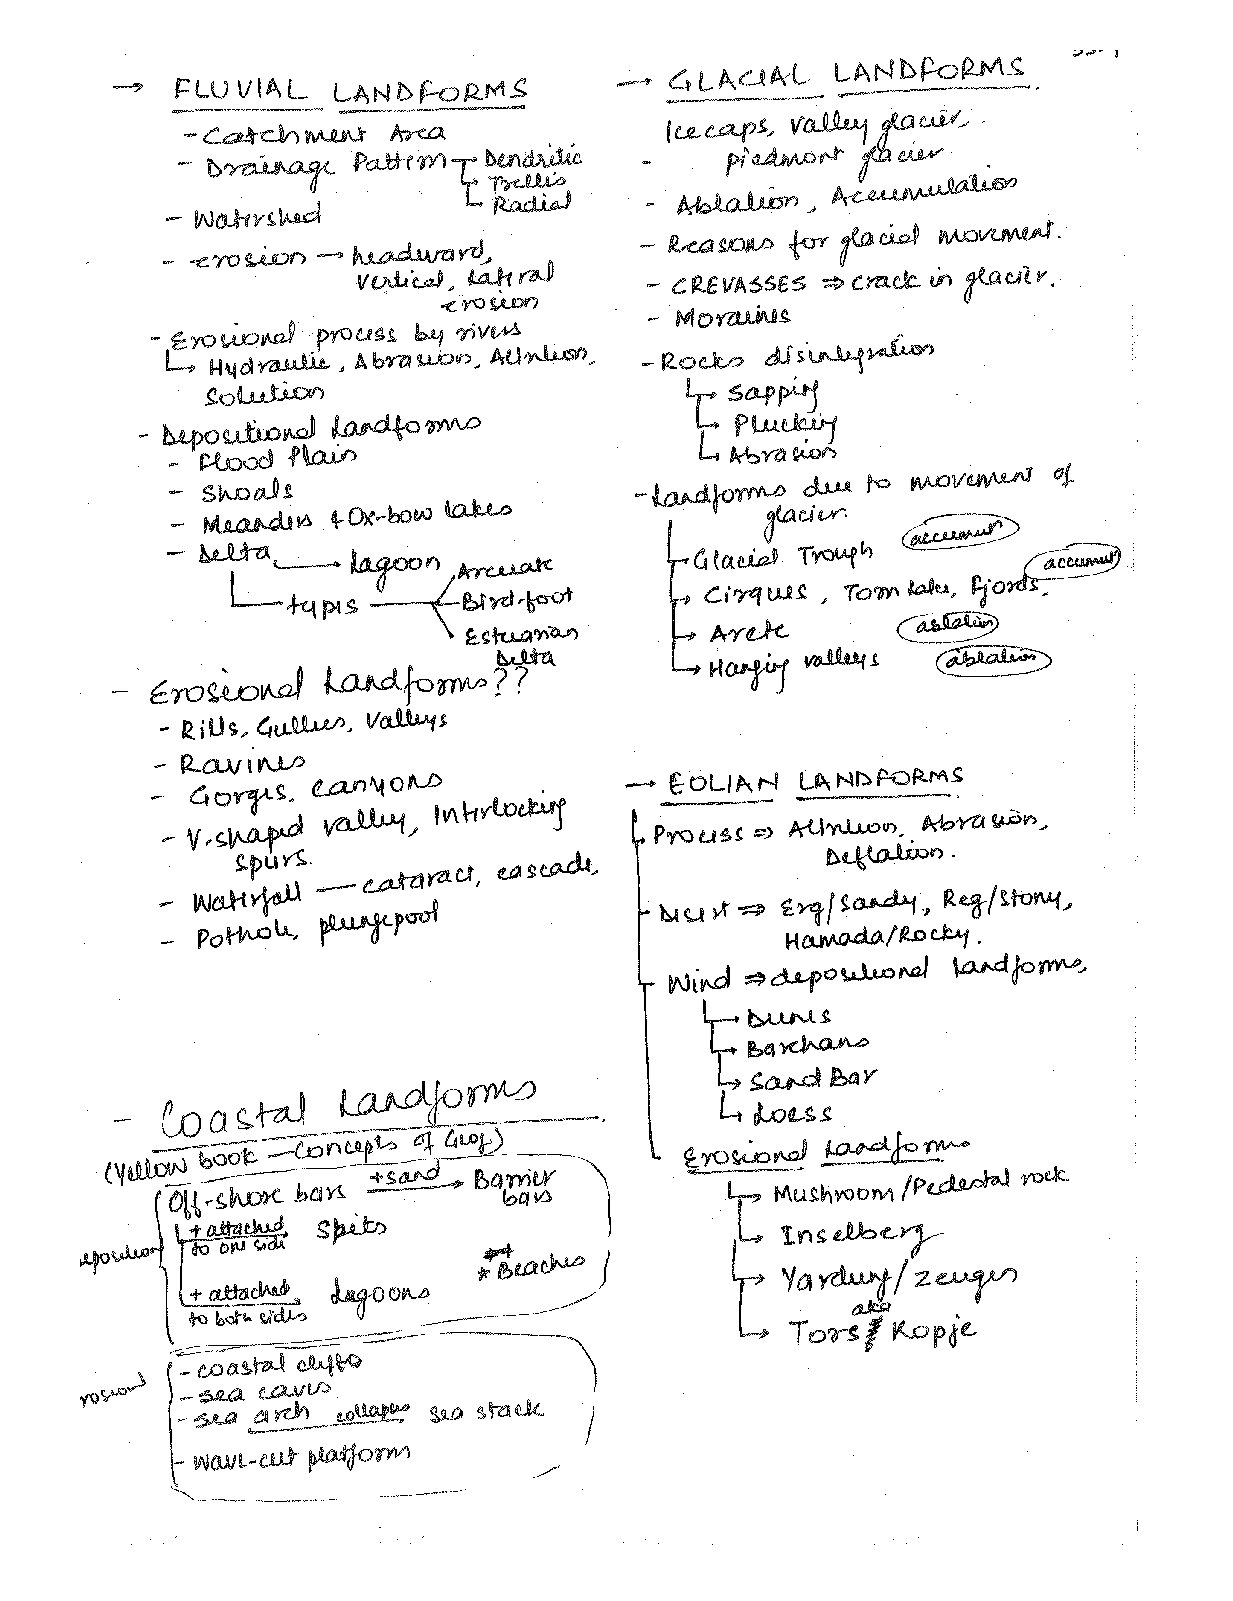 → FLUVIAL LANDFORMS
- Catchment Area
- Drainage Pattern → Dendritic
→ Trellis
→ Radial
- Watershed
- erosion → headward,
vertical, lateral
erosion
- Erosional process by rivers
↳ Hydraulic, Abrasion, Attrition,
Solution
- Depositional Landforms
- Flood Plain
- Shoals
- Meanders + Ox-bow lakes
- Delta → Lagoon
types → Arcuate
Bird-foot
Estuarian
Delta
- Erosional Landforms??
- Rills, Gullies, Valleys
- Ravines
- Gorges, canyons
- V-shaped valley, Interlocking
spurs.
- Waterfall — cataract, cascade,
- Pothole, plungepool
- Coastal Landforms
(Yellow book - Concepts of Geog)
Off-shore bars +sand → Barrier
bars
+ attached
to one side Spits
eposition
* Beaches
+ attached
to both sides Lagoons
rosional
- coastal cliffs
- sea caves
- sea arch collapses sea stack
- wave-cut platforms
→ GLACIAL LANDFORMS
Icecaps, valley glacier,
- piedmont glacier
- Ablation, Accumulation
- Reasons for glacial movement.
- CREVASSES ⇒ crack in glacier.
- Moraines
- Rocks disintegration
↳ Sapping
↳ Plucking
↳ Abrasion
- Landforms due to movement of
glacier.
→ Glacial Trough accumut
→ Cirques, Torn Lake, Fjords, accumut
→ Arete ablation
→ Hanging valleys ablation
→ EOLIAN LANDFORMS
Process ⇒ Attrition, Abrasion,
Deflation.
- Desert ⇒ Erg/Sandy, Reg/Stony,
Hamada/Rocky.
- Wind ⇒ depositional landforms,
→ Dunes
→ Barchans
→ Sand Bar
↳ Loess
Erosional Landforms
→ Mushroom/Pedestal rock
→ Inselberg
→ Yardung/zeugen
↳ Tors aka Kopje